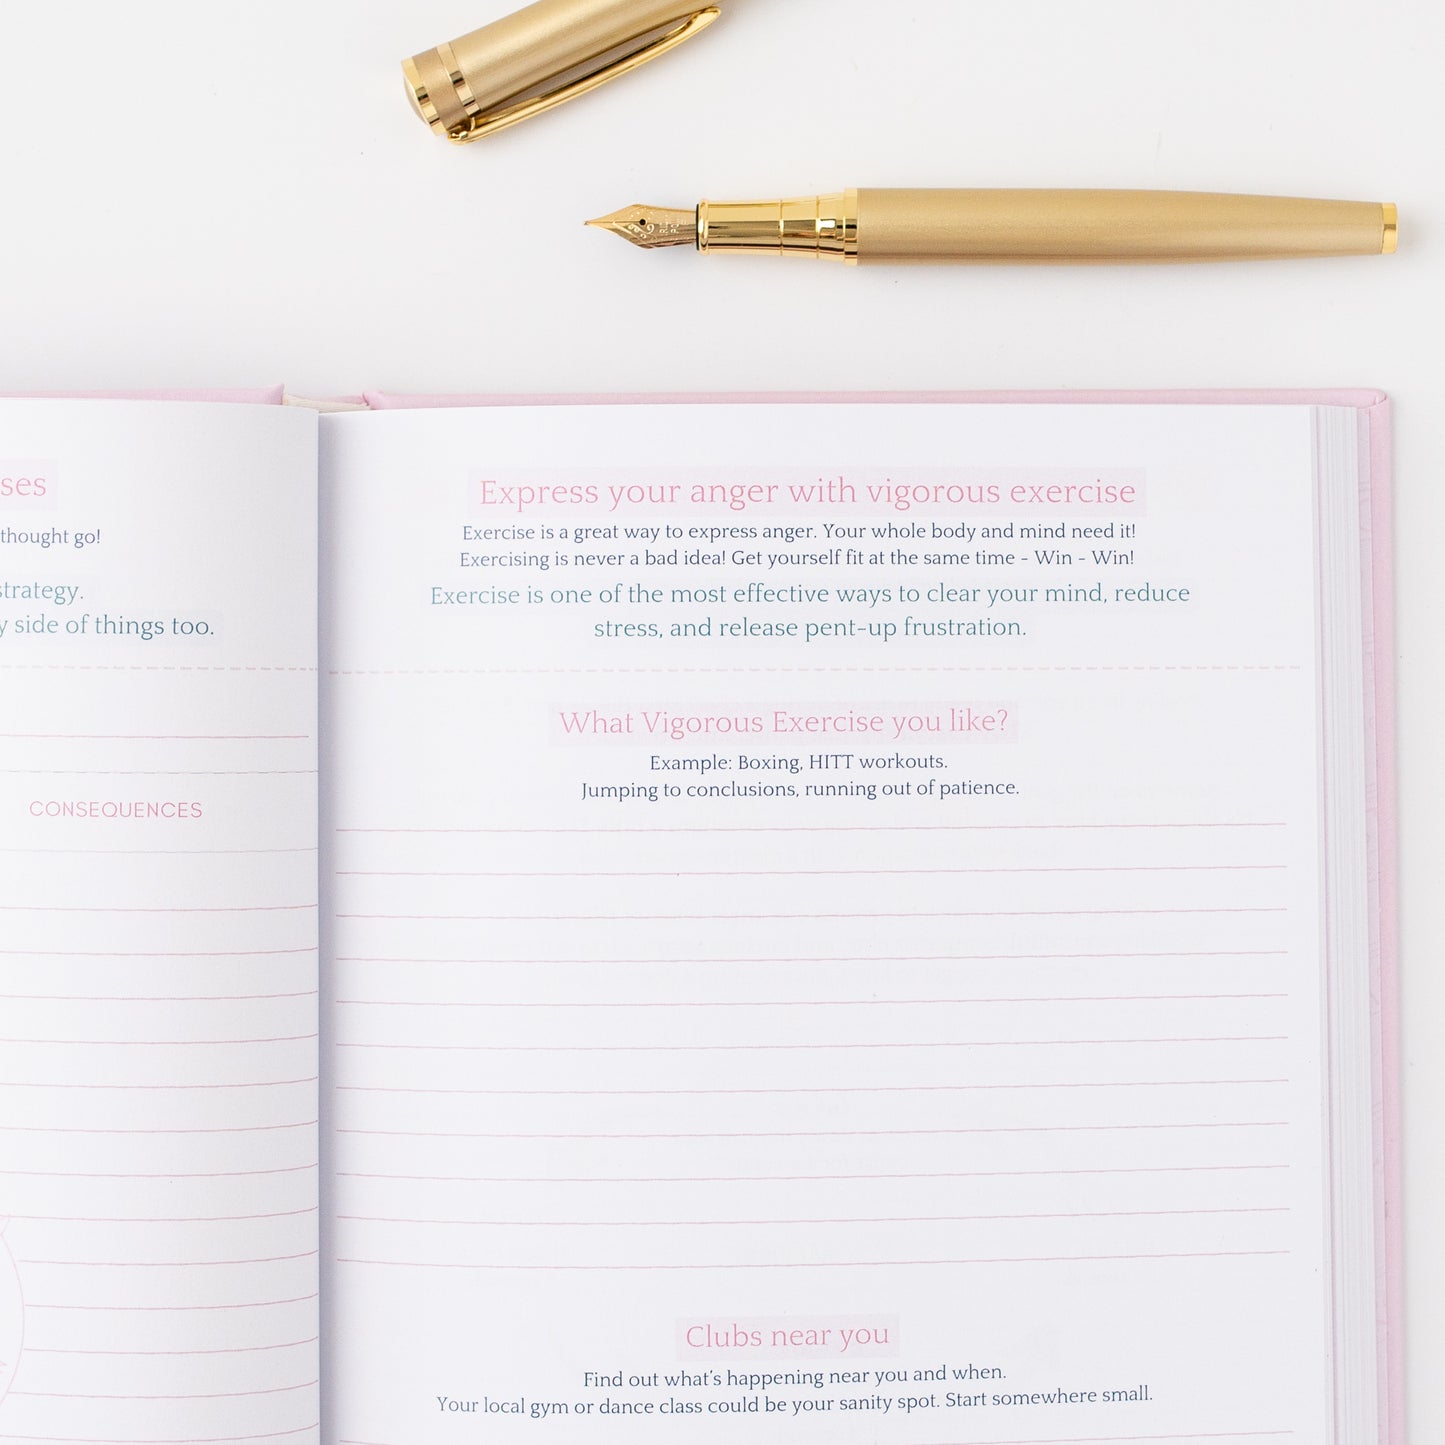 ses
thought go!
strategy.
y side of things too.
CONSEQUENCES
Express your anger with vigorous exercise
Exercise is a great way to express anger. Your whole body and mind need it!
Exercising is never a bad idea! Get yourself fit at the same time - Win - Win!
Exercise is one of the most effective ways to clear your mind, reduce
stress, and release pent-up frustration.
What Vigorous Exercise you like?
Example: Boxing, HITT workouts.
Jumping to conclusions, running out of patience.
Clubs near you
Find out what's happening near you and when.
Your local gym or dance class could be your sanity spot. Start somewhere small.